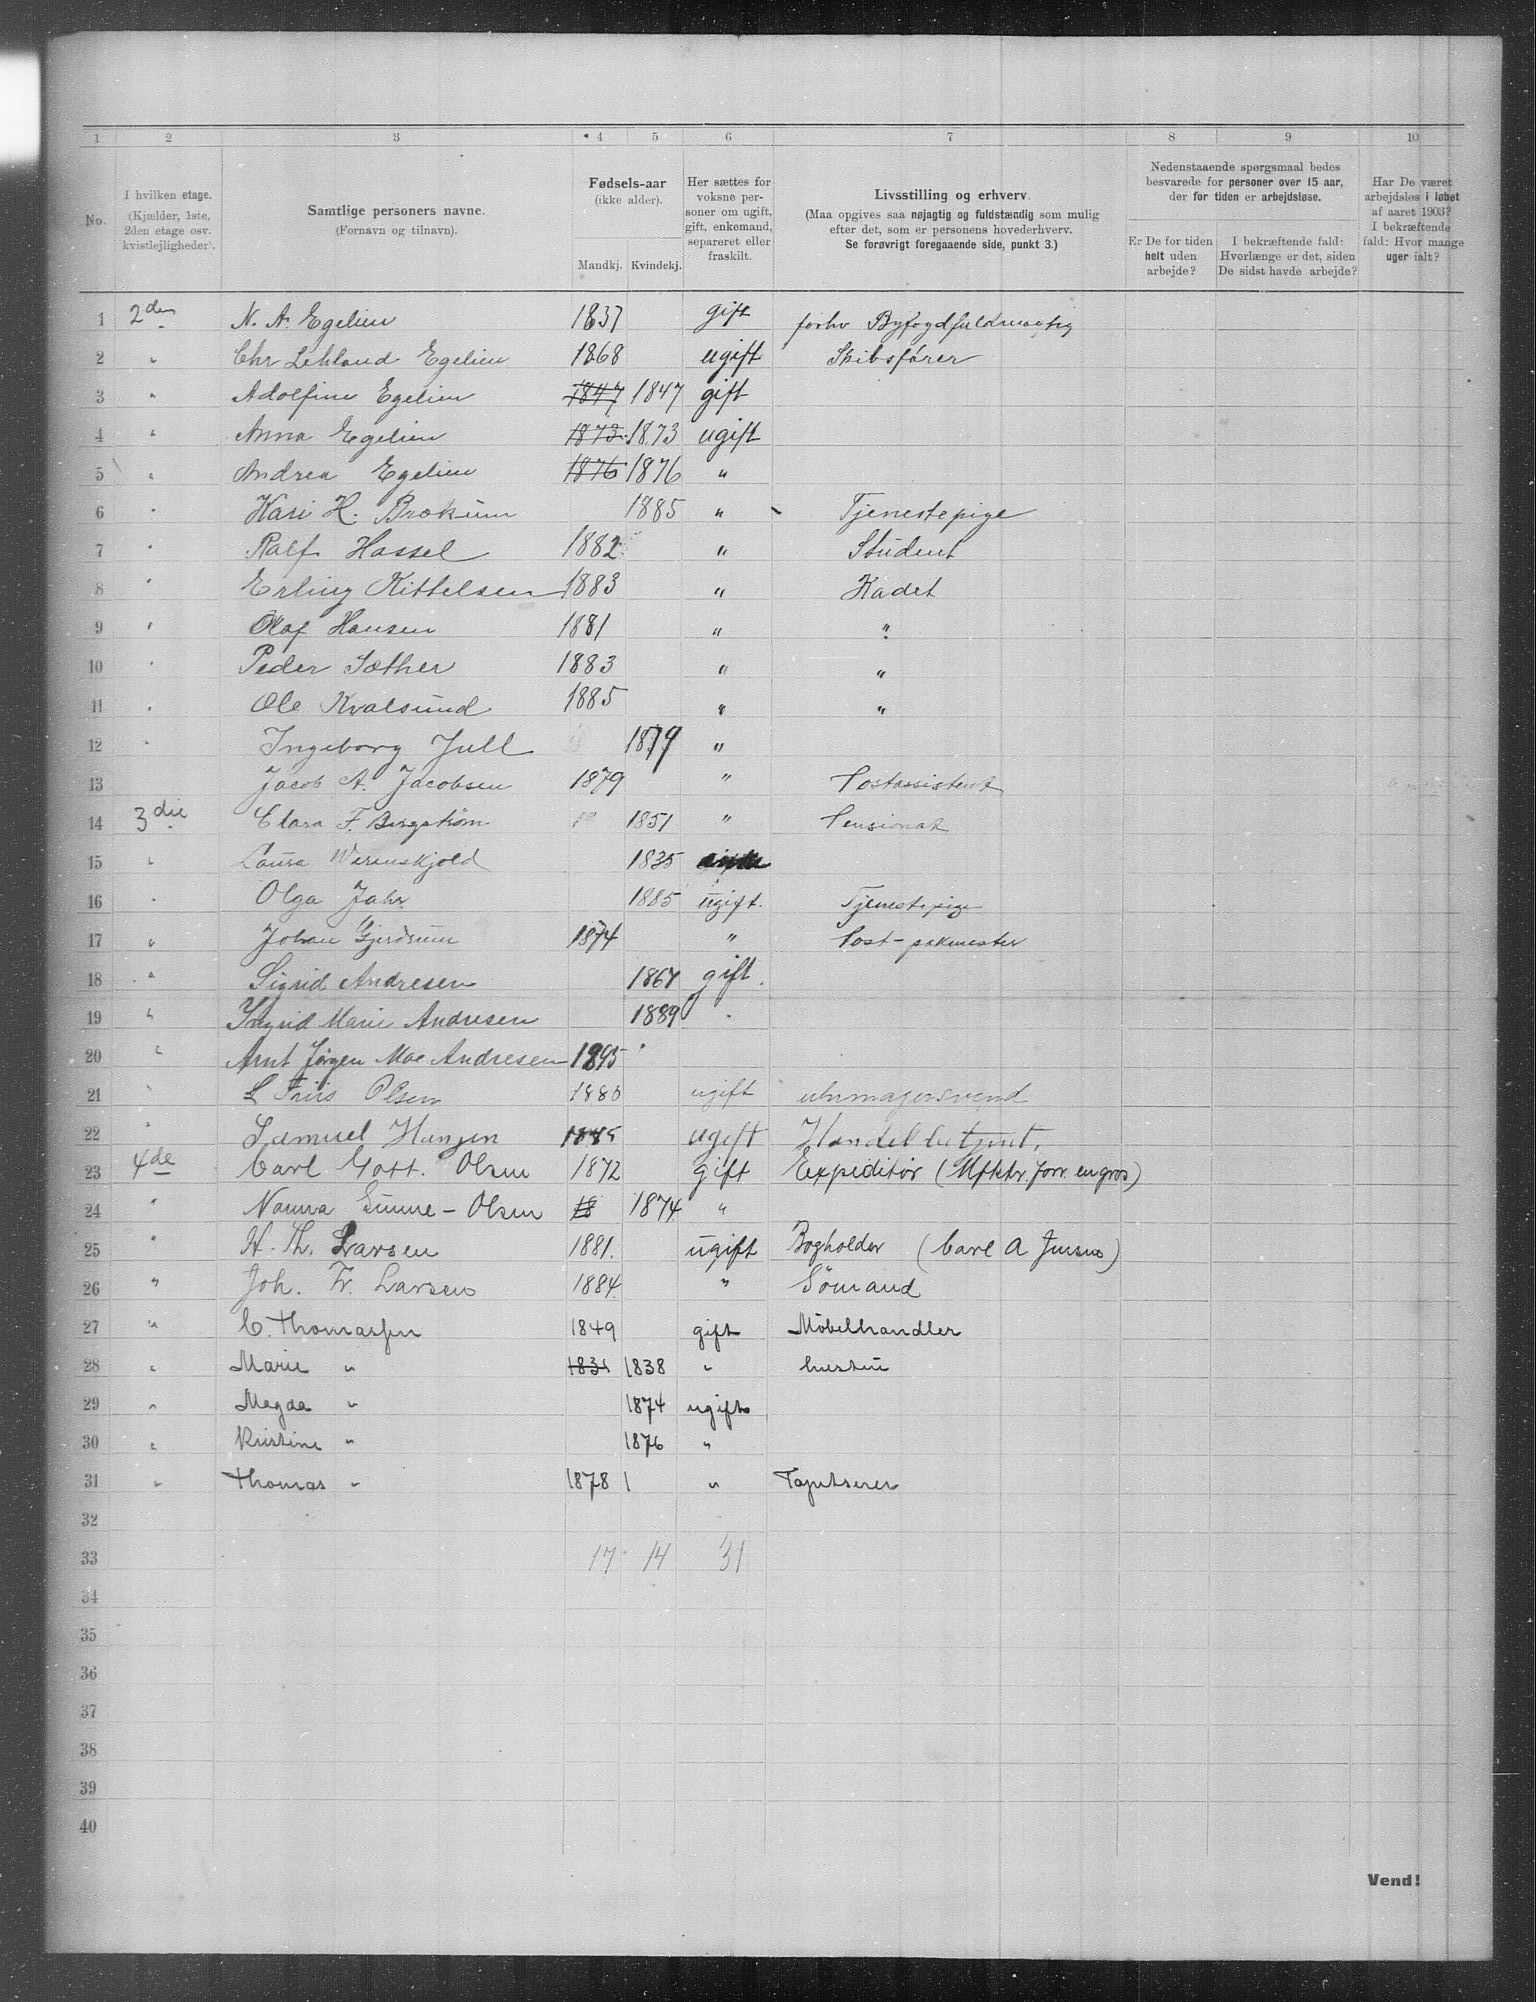 1 2 3 4 5 6 7 8 9 10
No.
I hvilken etage. (Kjælder, 1ste, 2den etage osv. kvistlejligheder).
Samtlige personers navne. (Fornavn og tilnavn).
Fødsels-aar (ikke alder). Mandkj. Kvindekj.
Her sættes for voksne personer om ugift, gift, enkemand, separeret eller fraskilt.
Livsstilling og erhverv. (Maa opgives saa nøjagtig og fuldstændig som mulig efter det, som er personens hovederhverv. Se forøvrigt foregaaende side, punkt 3.)
Nedenstaaende spørgsmaal bedes besvarede for personer over 15 aar, der for tiden er arbejdsløse.
Er De for tiden helt uden arbejde?
I bekræftende fald: Hvorlænge er det, siden De sidst havde arbejde?
Har De været arbejdsløs i løbet af aaret 1903? I bekræftende fald: Hvor mange uger ialt?
1 2den N. A. Egelien 1837 gift forhv Byfogdfuldmægtig
2 " Chr Lehland Egelien 1868 ugift Skibsfører
3 " Adolfine Egelien 1847 1847 gift
4 " Anna Egelien 1873 1873 ugift
5 " Andrea Egelien 1876 1876 "
6 " Kari H. Brækum 1885 " Tjenestepige
7 " Ralf Hassel 1882 " Student
8 " Erling Kittelsen 1883 " Kadet
9 " Olaf Hansen 1881 " "
10 " Peder Sæther 1883 " "
11 " Ole Kvalsund 1885 " "
12 " Ingeborg Jull 1879 "
13 Jacob A. Jacobsen 1879 " Postassistent
14 3die Clara F. Bergstrøm 1851 " Pensionat
15 " Laura Werenskjold 1835 enke
16 " Olga Jahr 1885 ugift. Tjenestepige
17 " Johan Gjerdrum 1874 " Post-pakmester
18 " Sigrid Andresen 1867 gift.
19 " Yngrid Marie Andresen 1889 "
20 " Arnt Jørgen Moe Andresen 1895 "
21 " L Friis Olsen 1880 ugift uhrmagersvend
22 " Samuel Hansen ugift Handelbetjent,
23 4de Carl Gott. Olsen 1872 gift Expeditør (Mfktr. forr. en gros)
24 " Nanna Gunne-Olsen 18 1874 "
25 " H. Th. Larsen 1881. ugift Bogholder (Carl A Jensen)
26 " Joh. Fr. Larsen 1884. " Sömand
27 " C. Thomassen 1849 gift Möbelhandler
28 " Marie " 1838 " hustru
29 " Magda " 1874 ugift
30 " Kristine " 1876 "
31 " Thomas " 1878 1 " Tapetserer
32
33 17 14 31
34
35
36
37
38
39
40
Vend!